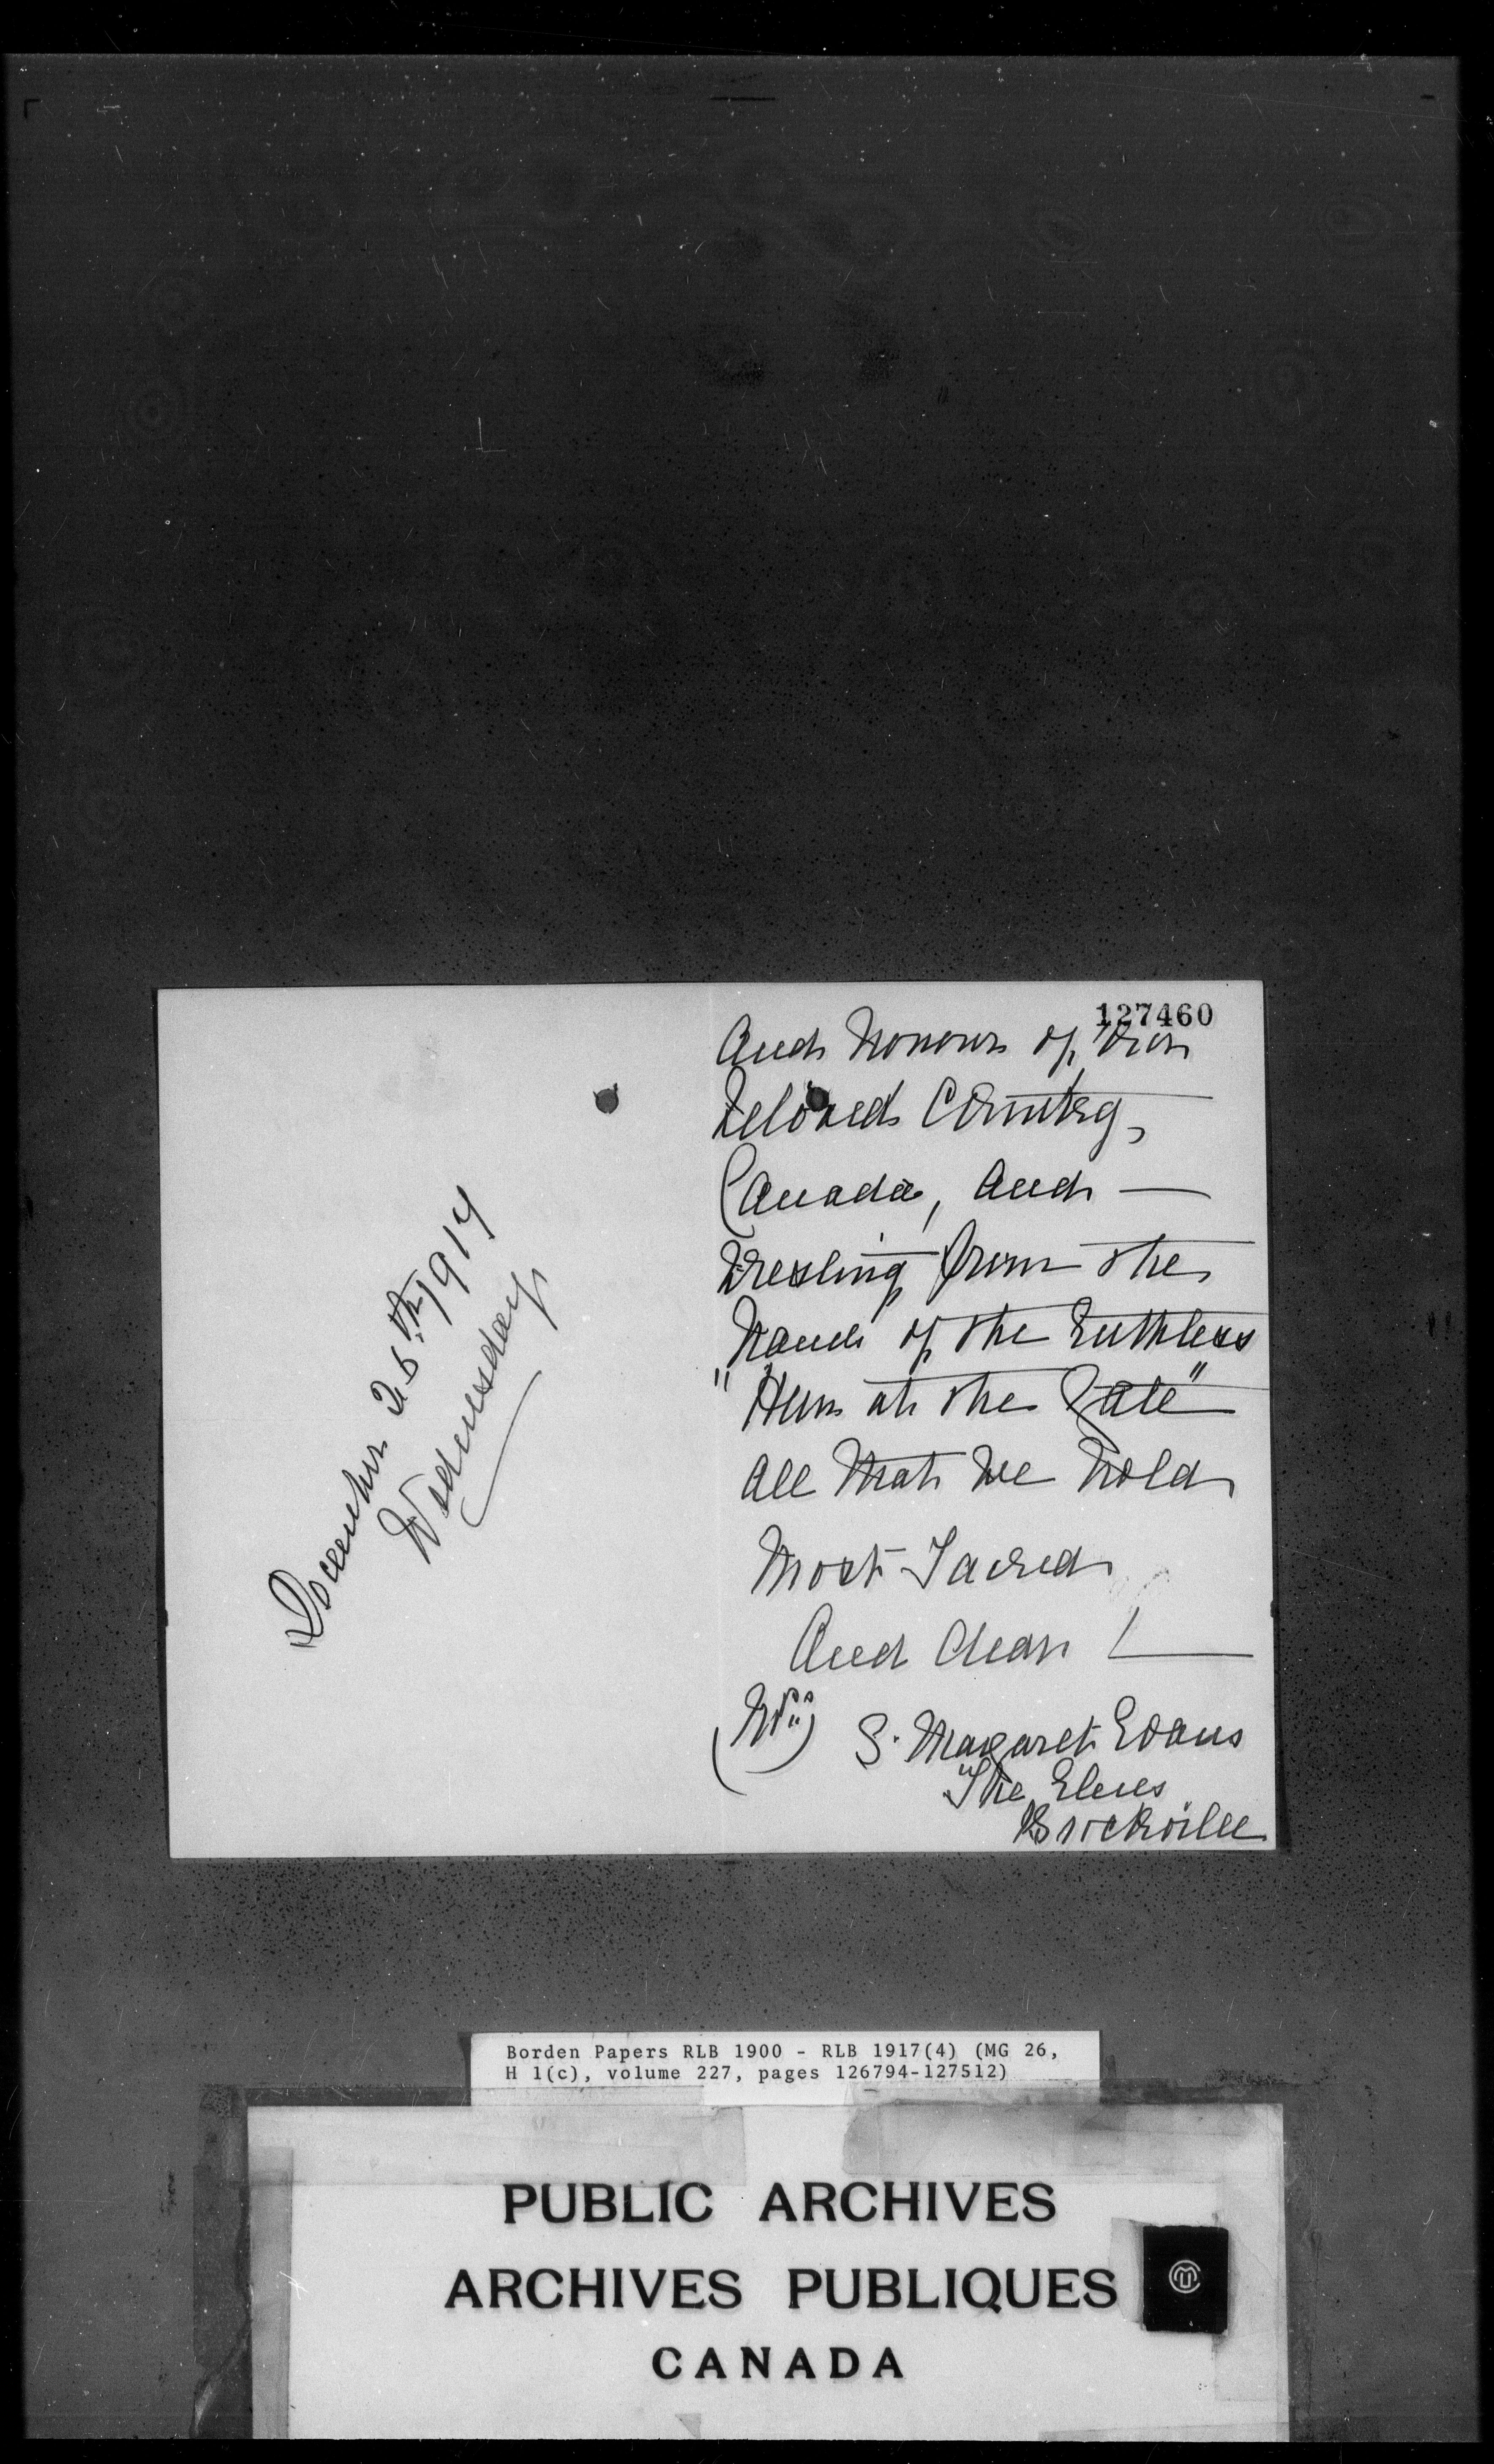 December 26th 1917
Wednesday
127460
And Honour of our
beloved Country,
Canada, And —
Wresting from the
Hands of the Ruthless
"Hun at the Gate"
All that we hold
Most Sacred
And dear! —
(Mrs) S. Margaret Evans
"The Elms
Brockville
Borden Papers RLB 1900 - RLB 1917(4) (MG 26,
H 1(c), volume 227, pages 126794-127512)
PUBLIC ARCHIVES
ARCHIVES PUBLIQUES
CANADA